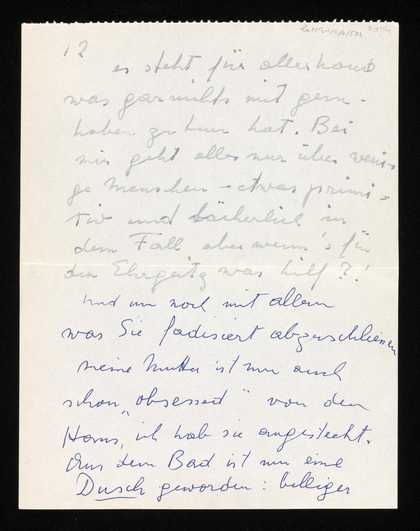 12
es steht für allerhand
was garnichts mit gern-
haben zu tun hat. Bei
mir geht alles nur über weni-
ge Menschen - etwas primi-
tiv und lächerlich in
dem Fall aber wenn's für
den Ehrgeitz was hilf?!
Und um noch mit allem
was Sie fadisiert abzuschliessen
meine Mutter ist nun auch
schon "obsessed" von den
Haus, ich hab sie angesteckt.
Aus dem Bad ist nun eine
Dusch geworden: billiger